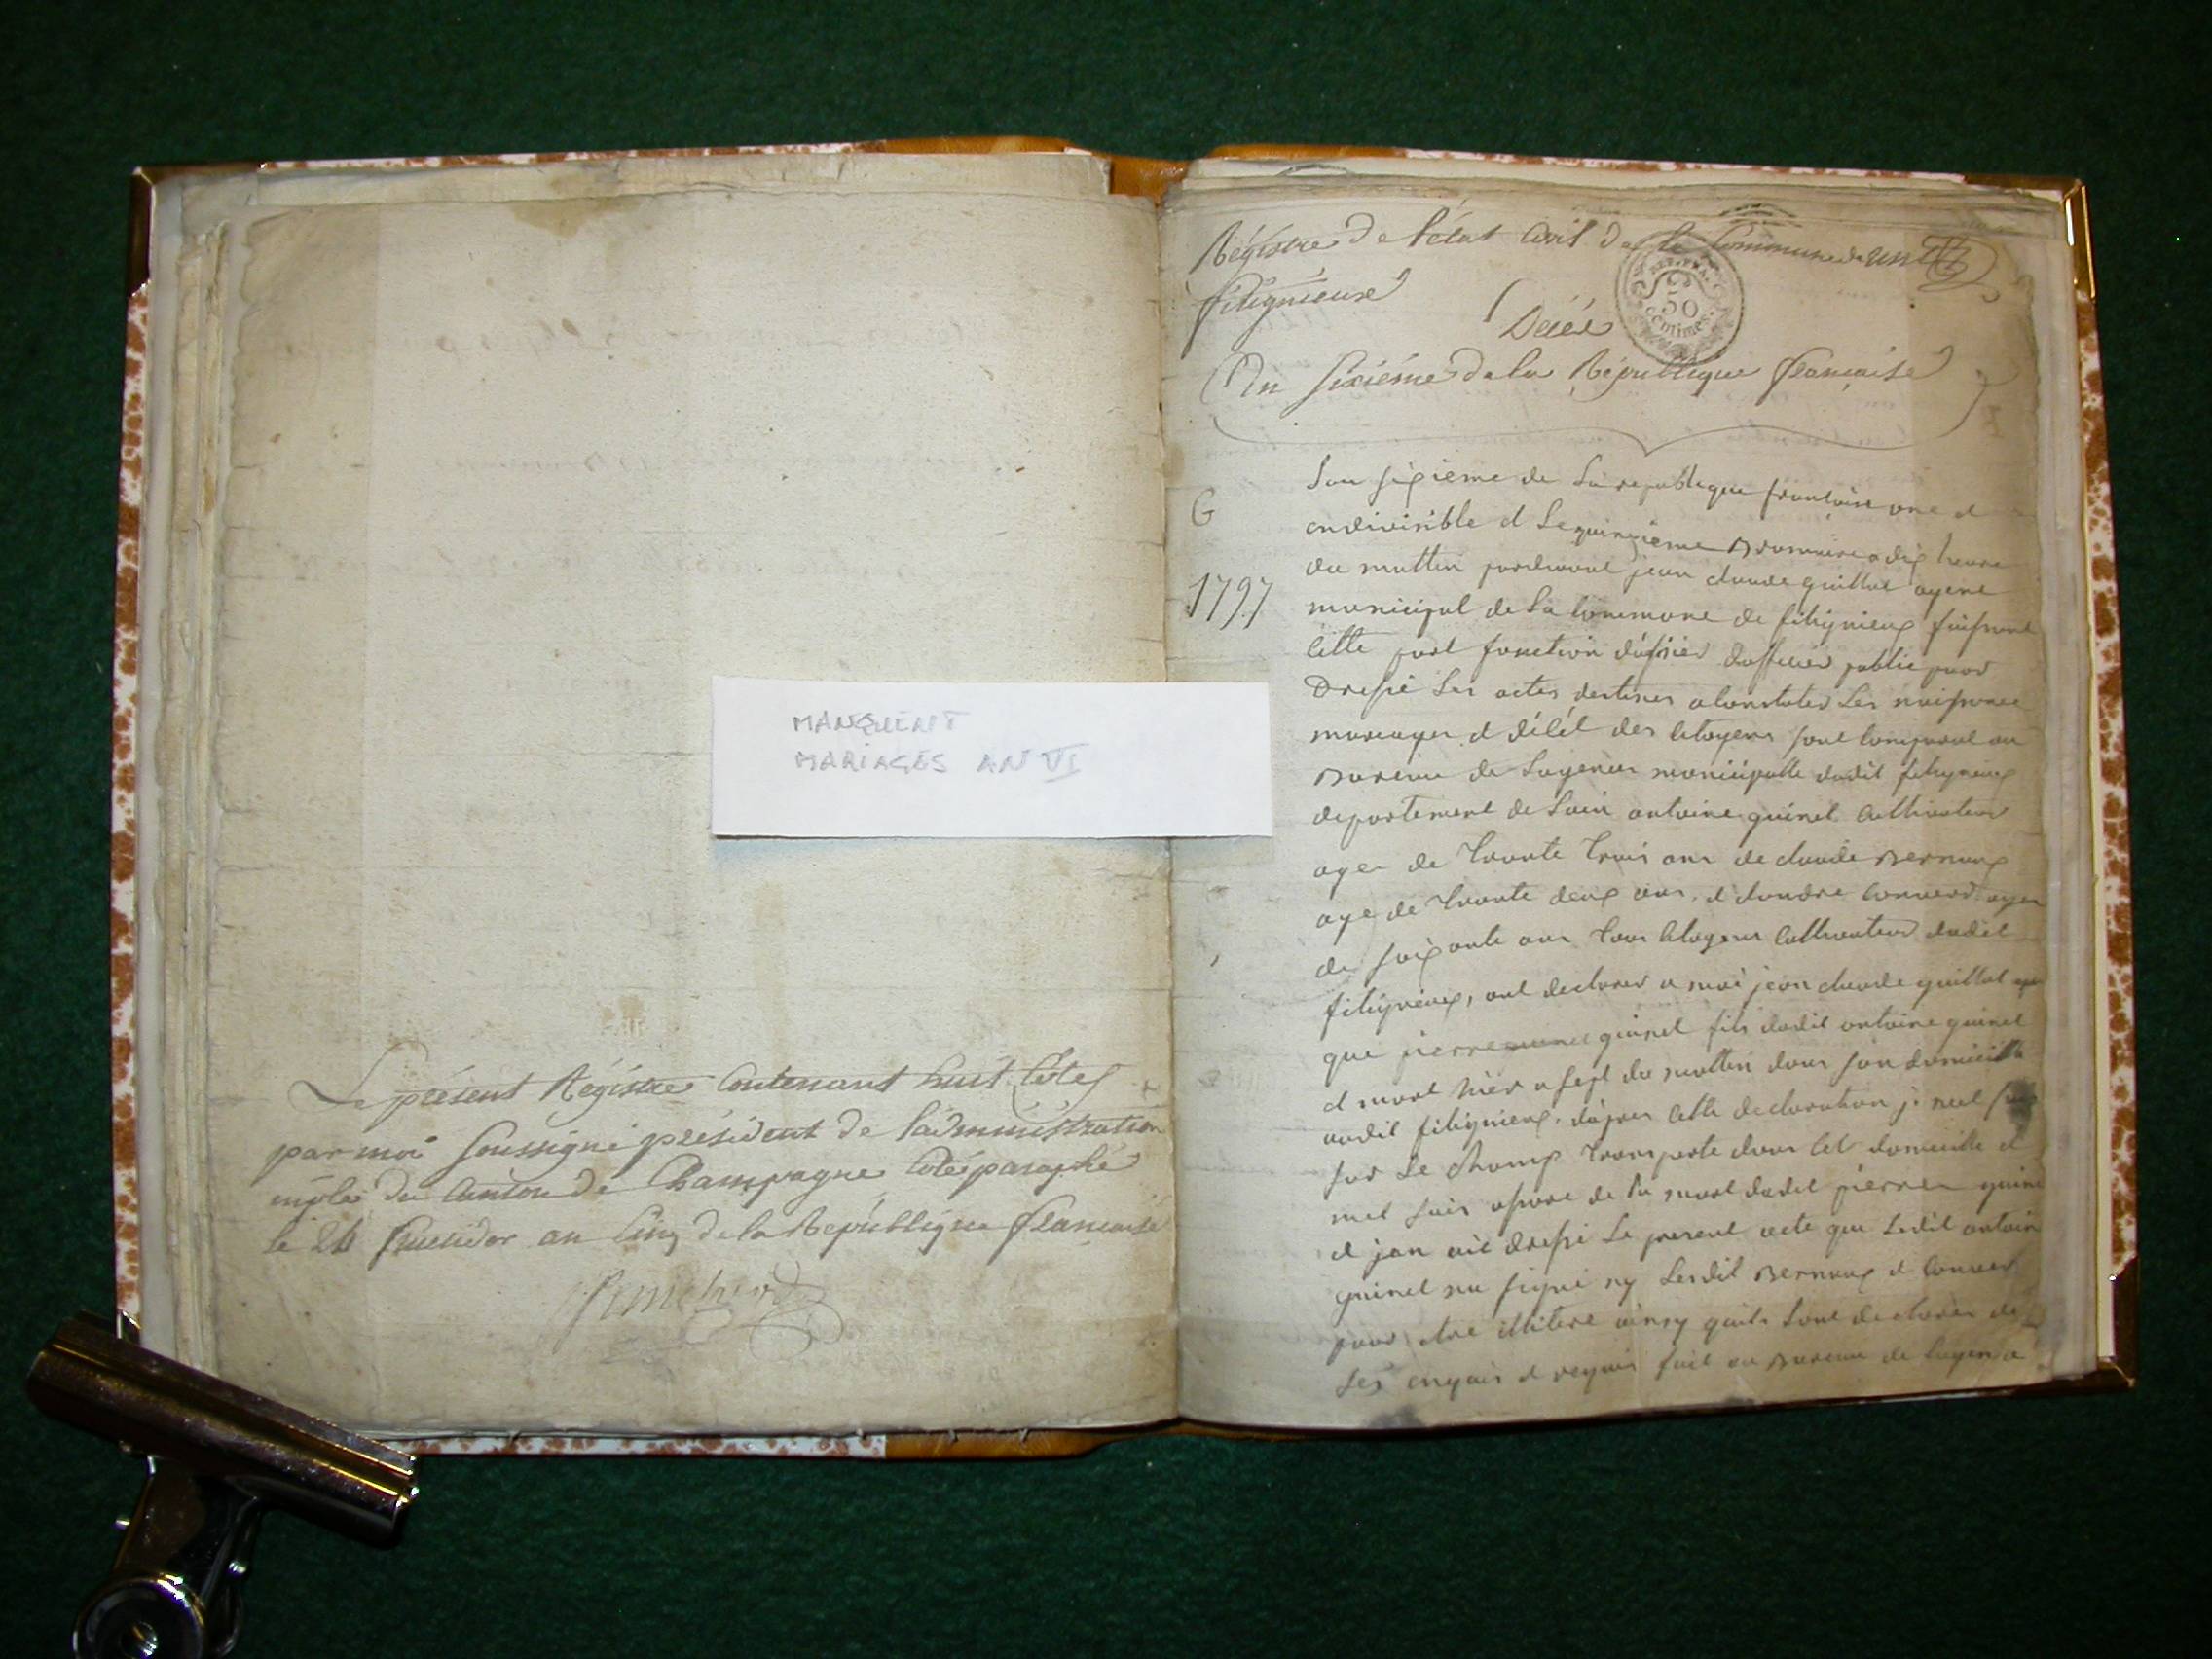 Le présent Régistre Contenant huit Cotes
par moi Soussigné président de l'administration
du Canton de Champagne Coté paraphé
le 24 fructidor an Cinq de la République française
MANQUENT
MARIAGES AN VI
Régistre de l'état Civil de la Commune de un
fitignieux
REP. FRA.
50
centimes.
Décés
An Sixiéme de la République française
G
1797
Lan sixieme de La republique frantoise une et
endivisible et Le quinzieme Brumaire a dix heure
du mattin pardevant jean claude guillot agent
municipal de La Commune de fitignieux faisant
Cette part fonction dofficier public pour
Dressé Les actes destines a Constater Les naissance
mariages et décét des Citoyens sont Comparut au
Bureau de Lagence municipalle dudit fitignieux
departement de Lain antoine guinet Cultivateur
agee de trante trois ans de claude Bernoux
age de trante deux ans et dandre Convers agee
de soixante ans tous Citoyens Cultivateur dudit
fitignieux, ont declarer a moi jean claude guillot
que pierre guinet fils dudit antoine guinet
et mort hier a sept du mattin dans son domicille
audit fitignieux. dapres Cette declaration je met suis
sur Le Champ transporte dans Cet domicille et
met suis assure de La mort dudit pierre guinet
et jan aie dressé Le present acte que Ledit antoine
guinet na signé ny Lesdit Bernoux et Convers
pour etre illitere ainsy quils Lont declarer de
Les enquis et requis fait au Bureau de Lagence